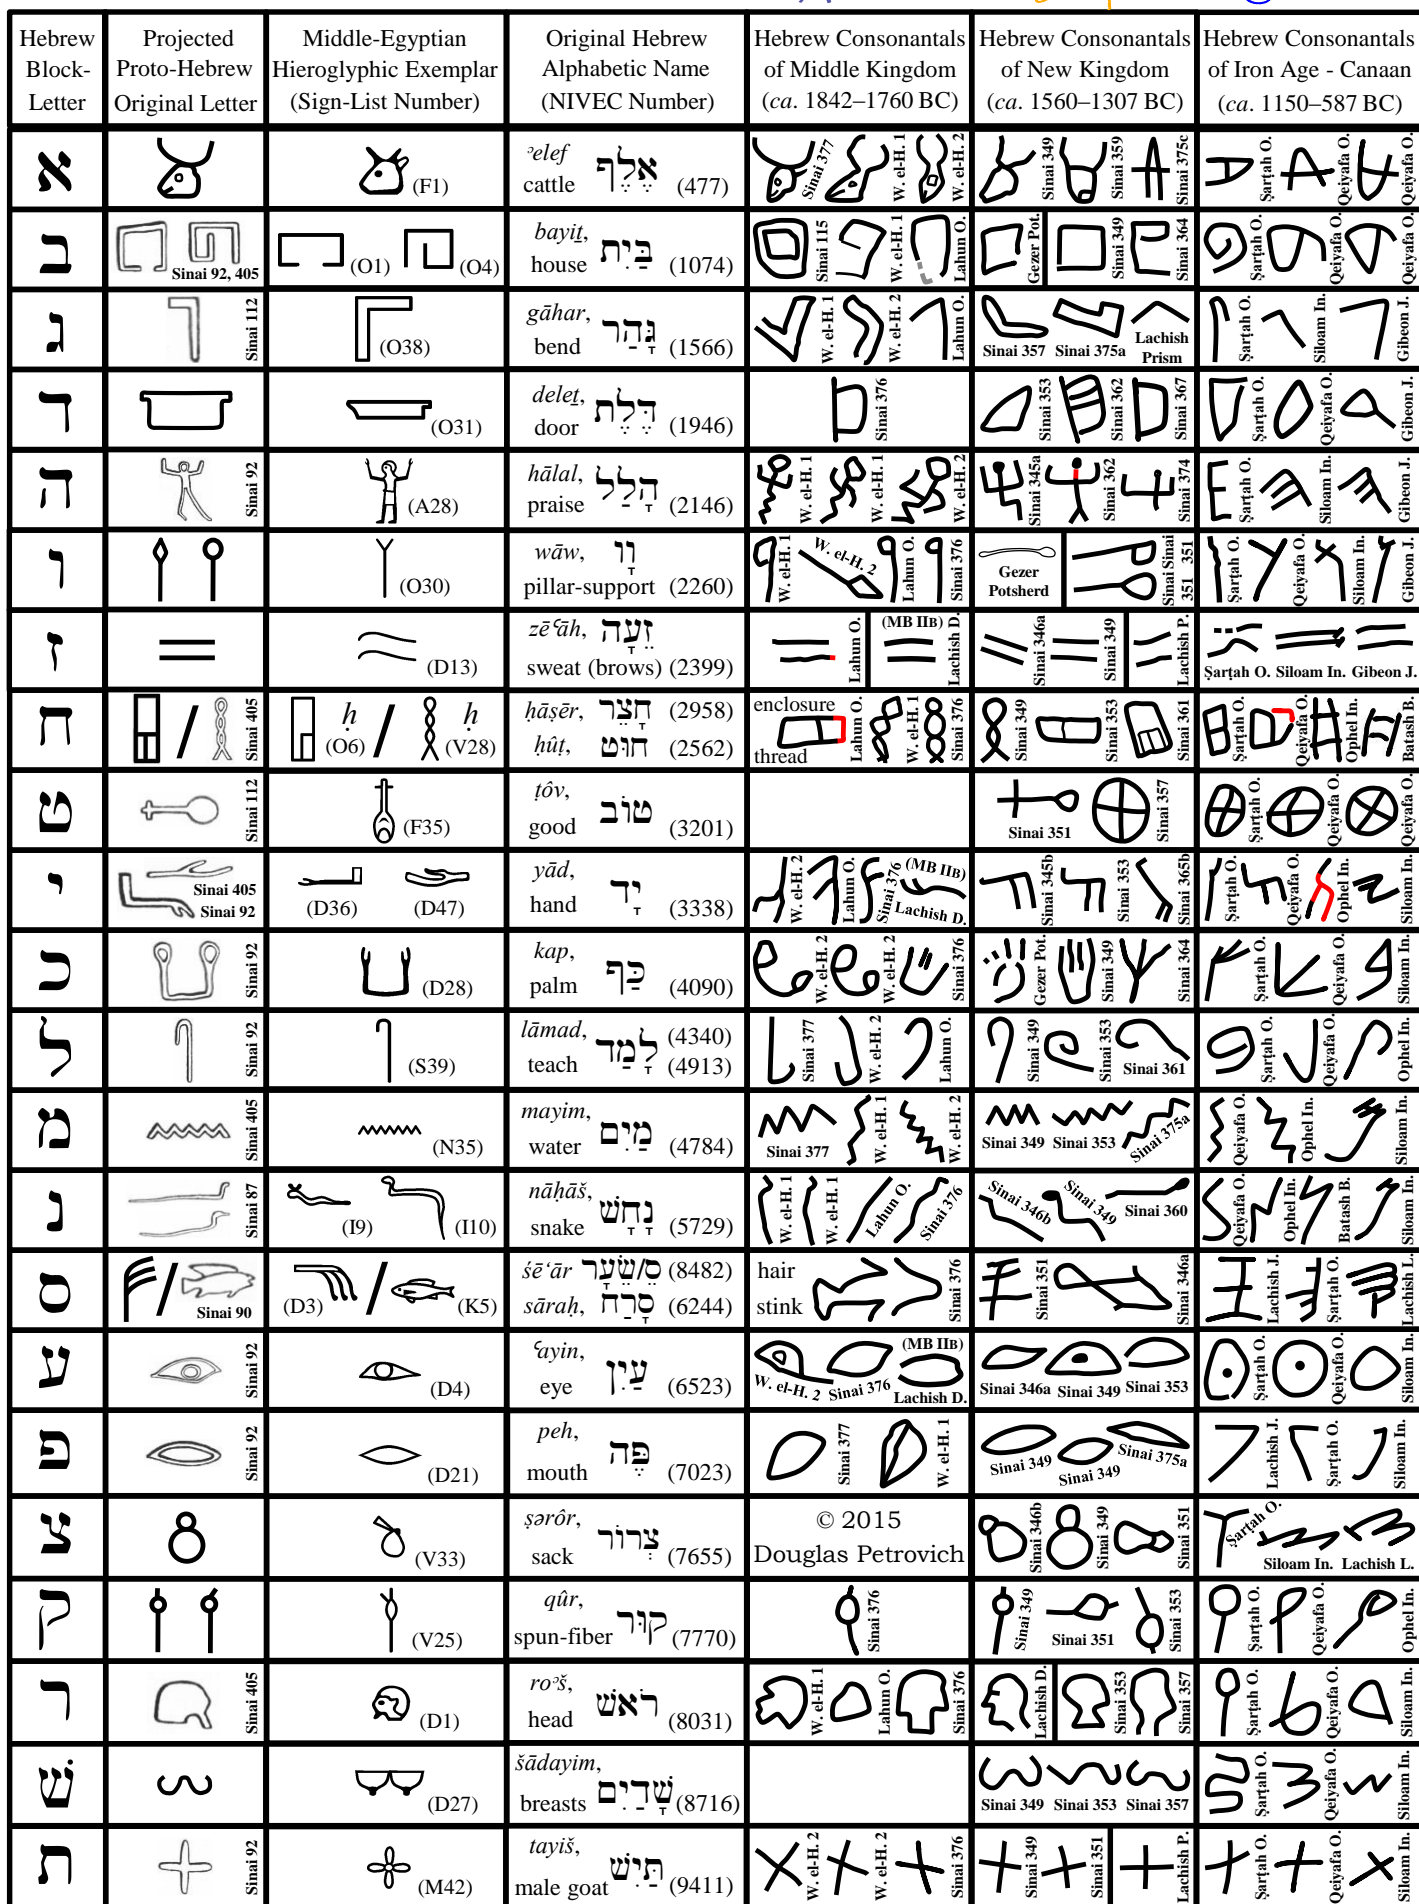 Hebrew Block-Letter
Projected Proto-Hebrew Original Letter
Middle-Egyptian Hieroglyphic Exemplar (Sign-List Number)
Original Hebrew Alphabetic Name (NIVEC Number)
Hebrew Consonantals of Middle Kingdom (ca. 1842–1760 BC)
Hebrew Consonantals of New Kingdom (ca. 1560–1307 BC)
Hebrew Consonantals of Iron Age - Canaan (ca. 1150–587 BC)
א (F1) ʾelef cattle אֶלֶף (477) Sinai 377 W. el-H. 1 W. el-H. 2 Sinai 349 Sinai 359 Sinai 375c Ṣarṭah O. Qeiyafa O. Qeiyafa O.
ב Sinai 92, 405 (O1) (O4) bayiṯ, house בַּיִת (1074) Sinai 115 W. el-H. 1 Lahun O. Gezer Pot. Sinai 349 Sinai 364 Ṣarṭah O. Qeiyafa O. Qeiyafa O.
ג Sinai 112 (O38) gāhar, bend גָּהַר (1566) W. el-H. 1 W. el-H. 2 Lahun O. Sinai 357 Sinai 375a Lachish Prism Ṣarṭah O. Siloam In. Gibeon J.
ד (O31) deleṯ, door דֶּלֶת (1946) Sinai 376 Sinai 353 Sinai 362 Sinai 367 Ṣarṭah O. Qeiyafa O. Gibeon J.
ה Sinai 92 (A28) hālal, praise הָלַל (2146) W. el-H. 1 W. el-H. 1 W. el-H. 2 Sinai 345a Sinai 362 Sinai 374 Ṣarṭah O. Siloam In. Gibeon J.
ו (O30) wāw, pillar-support וָו (2260) W. el-H. 1 W. el-H. 2 Lahun O. Sinai 376 Gezer Potsherd Sinai 351 Sinai 351 Ṣarṭah O. Qeiyafa O. Siloam In. Gibeon J.
ז (D13) zēʿāh, sweat (brows) זֵעָה (2399) Lahun O. (MB IIB) Lachish D. Sinai 346a Sinai 349 Lachish P. Ṣarṭah O. Siloam In. Gibeon J.
ח Sinai 405 ḥ (O6) / ḥ (V28) ḥāṣēr, חָצֵר (2958) ḥûṭ, חוּט (2562) enclosure thread Lahun O. W. el-H. 1 Sinai 376 Sinai 349 Sinai 353 Sinai 361 Ṣarṭah O. Qeiyafa O. Ophel In. Batash B.
ט Sinai 112 (F35) ṭôv, good טוֹב (3201) Sinai 351 Sinai 357 Ṣarṭah O. Qeiyafa O. Qeiyafa O.
י Sinai 405 Sinai 92 (D36) (D47) yād, hand יָד (3338) W. el-H. 2 Lahun O. Sinai 376 (MB IIB) Lachish D. Sinai 345b Sinai 353 Sinai 365b Ṣarṭah O. Qeiyafa O. Ophel In. Siloam In.
כ Sinai 92 (D28) kap, palm כַּף (4090) W. el-H. 2 W. el-H. 2 Sinai 376 Gezer Pot. Sinai 349 Sinai 364 Ṣarṭah O. Qeiyafa O. Siloam In.
ל Sinai 92 (S39) lāmad, teach לָמַד (4340) (4913) Sinai 377 W. el-H. 2 Lahun O. Sinai 349 Sinai 353 Sinai 361 Ṣarṭah O. Qeiyafa O. Ophel In.
מ Sinai 405 (N35) mayim, water מַיִם (4784) Sinai 377 W. el-H. 1 W. el-H. 2 Sinai 349 Sinai 353 Sinai 375a Qeiyafa O. Ophel In. Siloam In.
נ Sinai 87 (I9) (I10) nāḥāš, snake נָחָשׁ (5729) W. el-H. 1 W. el-H. 1 Lahun O. Sinai 376 Sinai 346b Sinai 349 Sinai 360 Qeiyafa O. Ophel In. Batash B. Siloam In.
ס Sinai 90 (D3) / (K5) śēʿār ס/שֵׂעָר (8482) sāraḥ, סָרַח (6244) hair stink Sinai 376 Sinai 351 Sinai 346a Lachish J. Ṣarṭah O. Lachish L.
ע Sinai 92 (D4) ʿayin, eye עַיִן (6523) W. el-H. 2 Sinai 376 (MB IIB) Lachish D. Sinai 346a Sinai 349 Sinai 353 Ṣarṭah O. Qeiyafa O. Siloam In.
פ Sinai 92 (D21) peh, mouth פֶּה (7023) Sinai 377 W. el-H. 1 Sinai 349 Sinai 349 Sinai 375a Lachish J. Ṣarṭah O. Siloam In.
צ (V33) ṣərôr, sack צְרוֹר (7655) © 2015 Douglas Petrovich Sinai 346b Sinai 349 Sinai 351 Ṣarṭah O. Siloam In. Lachish L.
ק (V25) qûr, spun-fiber קוּר (7770) Sinai 376 Sinai 349 Sinai 351 Sinai 353 Ṣarṭah O. Qeiyafa O. Ophel In.
ר Sinai 405 (D1) roʾš, head רֹאשׁ (8031) W. el-H. 1 Lahun O. Sinai 376 Lachish D. Sinai 353 Sinai 357 Ṣarṭah O. Qeiyafa O. Siloam In.
שׁ (D27) šādayim, breasts שָׁדַיִם (8716) Sinai 349 Sinai 353 Sinai 357 Ṣarṭah O. Qeiyafa O. Siloam In.
ת Sinai 92 (M42) tayiš, male goat תַּיִשׁ (9411) W. el-H. 2 W. el-H. 2 Sinai 376 Sinai 349 Sinai 351 Lachish P. Ṣarṭah O. Qeiyafa O. Siloam In.